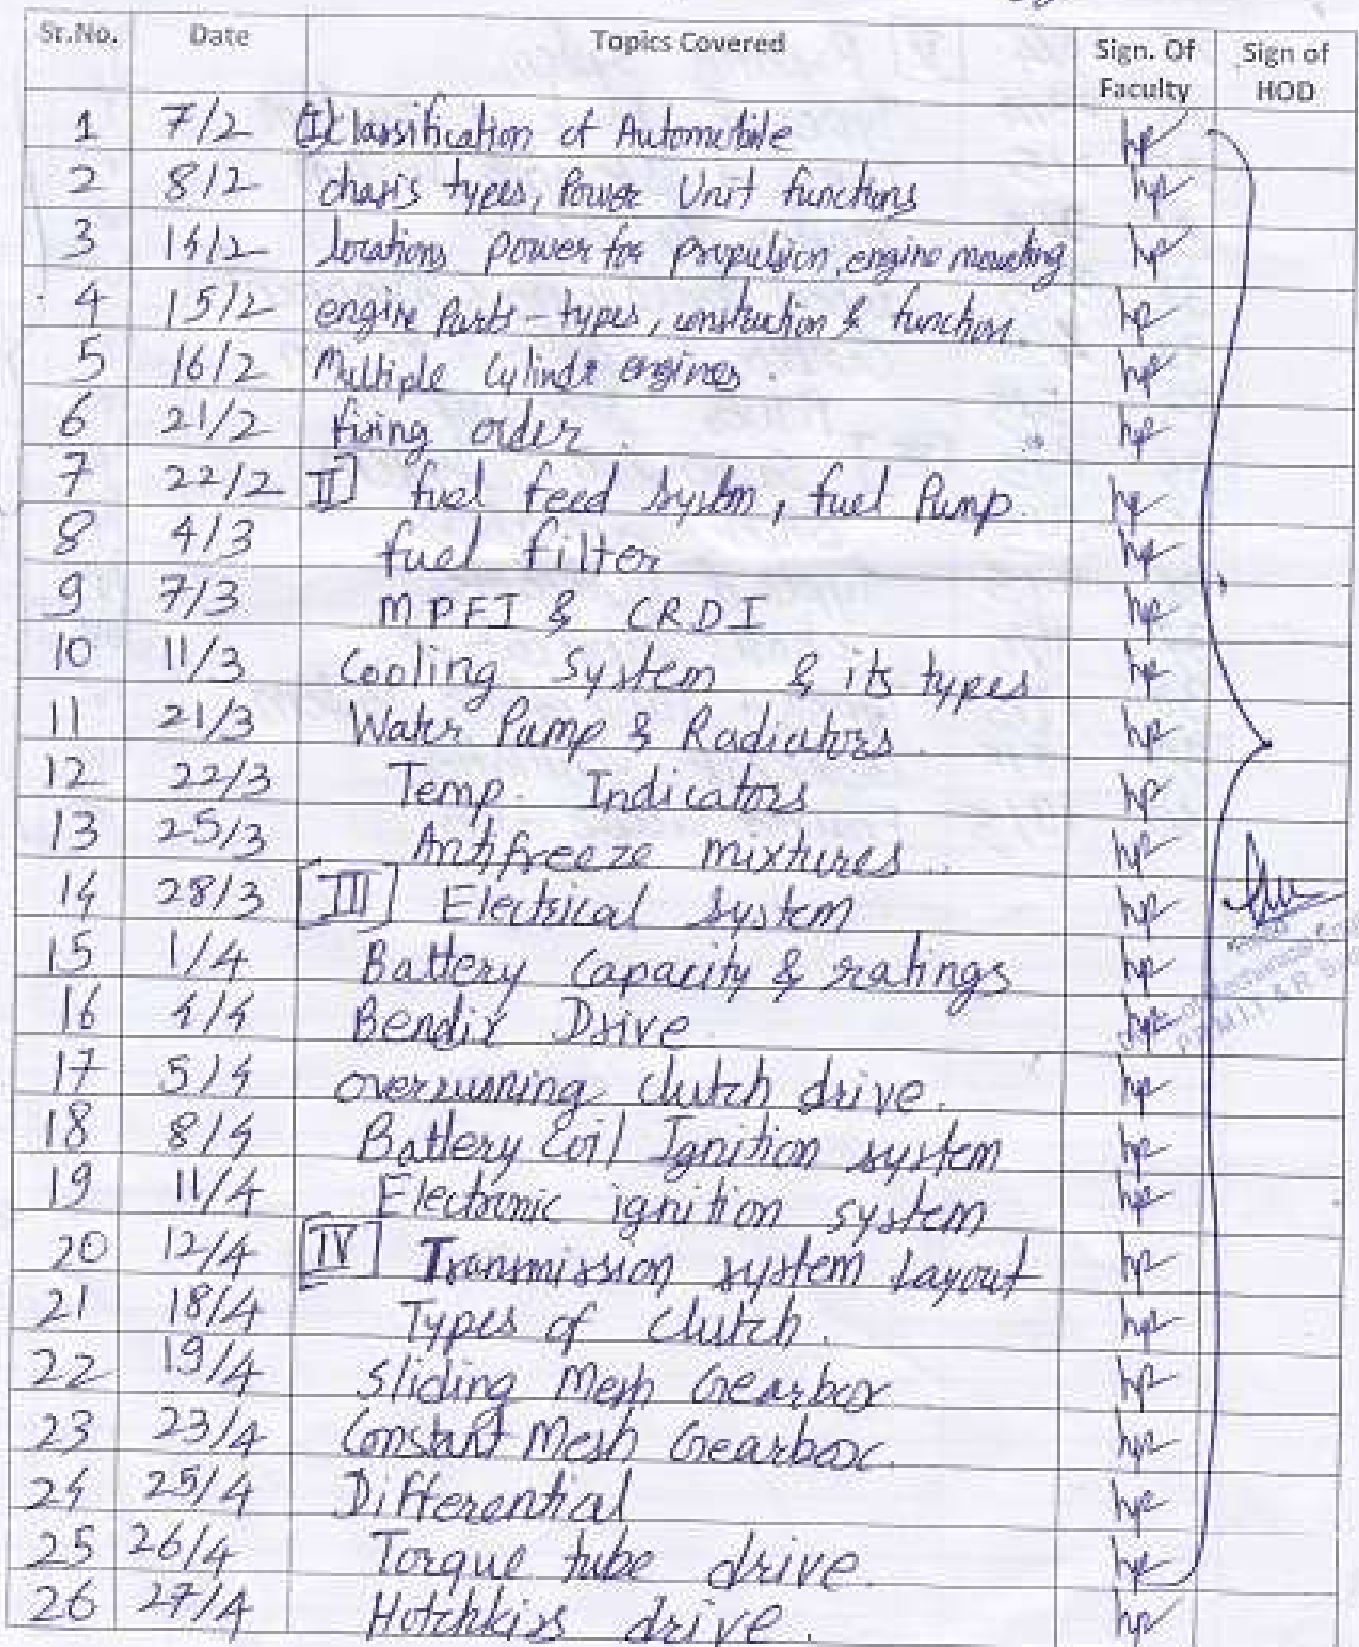 Sr.No. Date Topics Covered Sign. Of Faculty Sign of HOD
1 7/2 (I) Classification of Automobile
2 8/2 chasis types, Power Unit functions
3 14/2 locations power for propulsion, engine mounting
4 15/2 engine Parts - types, construction & function.
5 16/2 Multiple Cylinder engines.
6 21/2 firing order.
7 22/2 II fuel feed system, fuel Pump.
8 4/3 fuel filter
9 7/3 MPFI & CRDI
10 11/3 Cooling System & its types
11 21/3 Water Pump & Radiators.
12 22/3 Temp. Indicators
13 25/3 Antifreeze mixtures.
14 28/3 III Electrical system
15 1/4 Battery Capacity & ratings
16 4/4 Bendix Drive
17 5/4 overrunning clutch drive.
18 8/4 Battery Coil Ignition system
19 11/4 Electronic ignition system
20 12/4 IV Transmission system Layout
21 18/4 Types of Clutch.
22 19/4 Sliding Mesh Gearbox
23 23/4 Constant Mesh Gearbox.
24 25/4 Differential
25 26/4 Torque tube drive.
26 27/4 Hotchkiss drive.